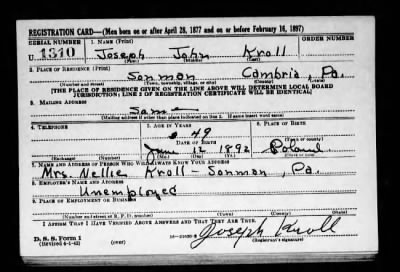 REGISTRATION CARD—(Men born on or after April 28, 1877 and on or before February 16, 1897)
SERIAL NUMBER 1. NAME (Print) ORDER NUMBER
U 1310 Joseph John Kroll
(First) (Middle) (Last)
2. PLACE OF RESIDENCE (Print)
Sonman Cambria, Pa.
(Number and street) (Town, township, village, or city) (County) (State)
[THE PLACE OF RESIDENCE GIVEN ON THE LINE ABOVE WILL DETERMINE LOCAL BOARD
JURISDICTION; LINE 2 OF REGISTRATION CERTIFICATE WILL BE IDENTICAL]
3. MAILING ADDRESS
Same
[Mailing address if other than place indicated on line 2. If same insert word same]
4. TELEPHONE 5. AGE IN YEARS 6. PLACE OF BIRTH
49
DATE OF BIRTH (Town or county)
June 12 1892 Poland
(Exchange) (Number) (Mo.) (Day) (Yr.) (State or country)
7. NAME AND ADDRESS OF PERSON WHO WILL ALWAYS KNOW YOUR ADDRESS
Mrs. Nellie Kroll - Sonman, Pa.
8. EMPLOYER'S NAME AND ADDRESS
Unemployed
9. PLACE OF EMPLOYMENT OR BUSINESS
(Number and street or R. F. D. number) (Town) (County) (State)
I AFFIRM THAT I HAVE VERIFIED ABOVE ANSWERS AND THAT THEY ARE TRUE.
Joseph Kroll
D. S. S. Form 1
(Revised 4-1-42) (over) (Registrant's signature)